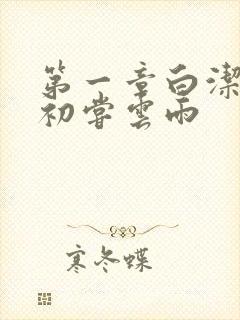 第一章白潔
初嘗雲雨
寒冬蝶